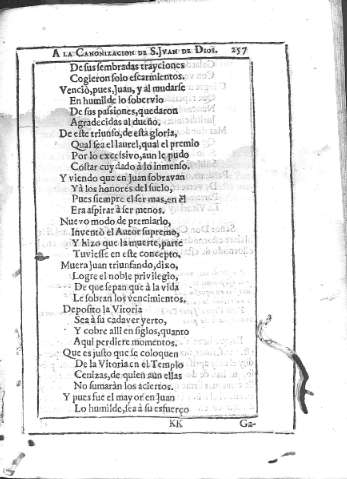 A LA CANONIZACION DE S. JVAN DE DIOS. 257
De sus sembradas trayciones
Cogieron solo escarmientos.
Venciò, pues, Juan, y al mudarse
En humilde lo sobervio
De sus passiones, quedaron
Agradecidas al dueño.
De este triunfo, de esta gloria,
Qual sea el laurel, qual el premio
Por lo excelsivo, aun le pudo
Costar cuydado à lo inmenso.
Y viendo que en Juan sobravan
Yà los honores del suelo,
Pues siempre el ser mas, en èl
Era aspirar à ser menos.
Nuevo modo de premiarlo,
Inventò el Autor supremo,
Y hizo que la muerte, parte
Tuviesse en este concepto.
Muera Juan triunfando, dixo,
Logre el noble privilegio,
De que sepan que à la vida
Le sobran los vencimientos.
Deposito la Vitoria
Sea à su cadaver yerto,
Y cobre alli en siglos, quanto
Aqui perdiere momentos.
Que es justo que se coloquen
De la Vitoria en el Templo
Cenizas, de quien aun ellas
No sumaràn los aciertos.
Y pues fue el mayor en Juan
Lo humilde, sea à su esfuerço
KK Ga-